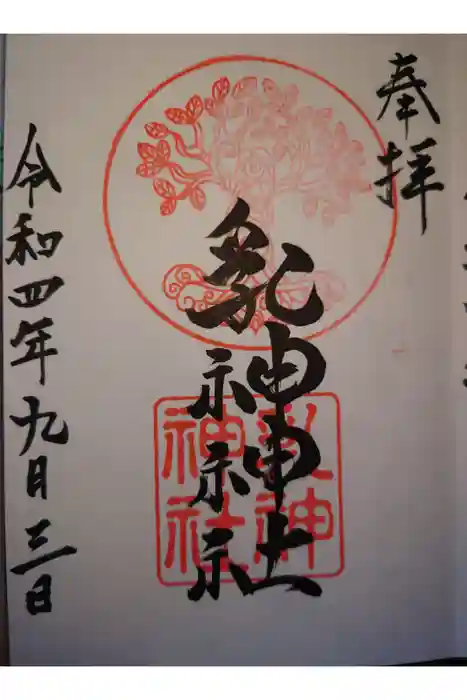 奉拝
乳神神社
乳神
神社
令和四年九月三日